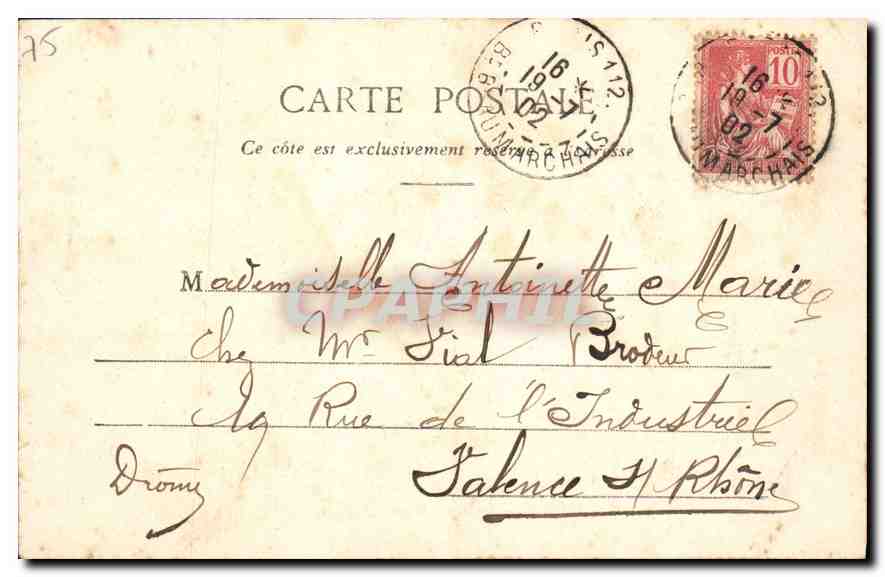 75
CARTE POSTALE
Ce côte est exclusivement réservé à l'adresse
IS 112.
Bd BEAUMARCHAIS
16
19 - 7
02
POSTES
10
112
16
19 - 7
02
MARCHAIS
Mademoiselle Antoinette Marie
Chez Mr Vial Brodeur
19 Rue de l'Industrie
Drôme
Valence s/ Rhône
CPAPHIL